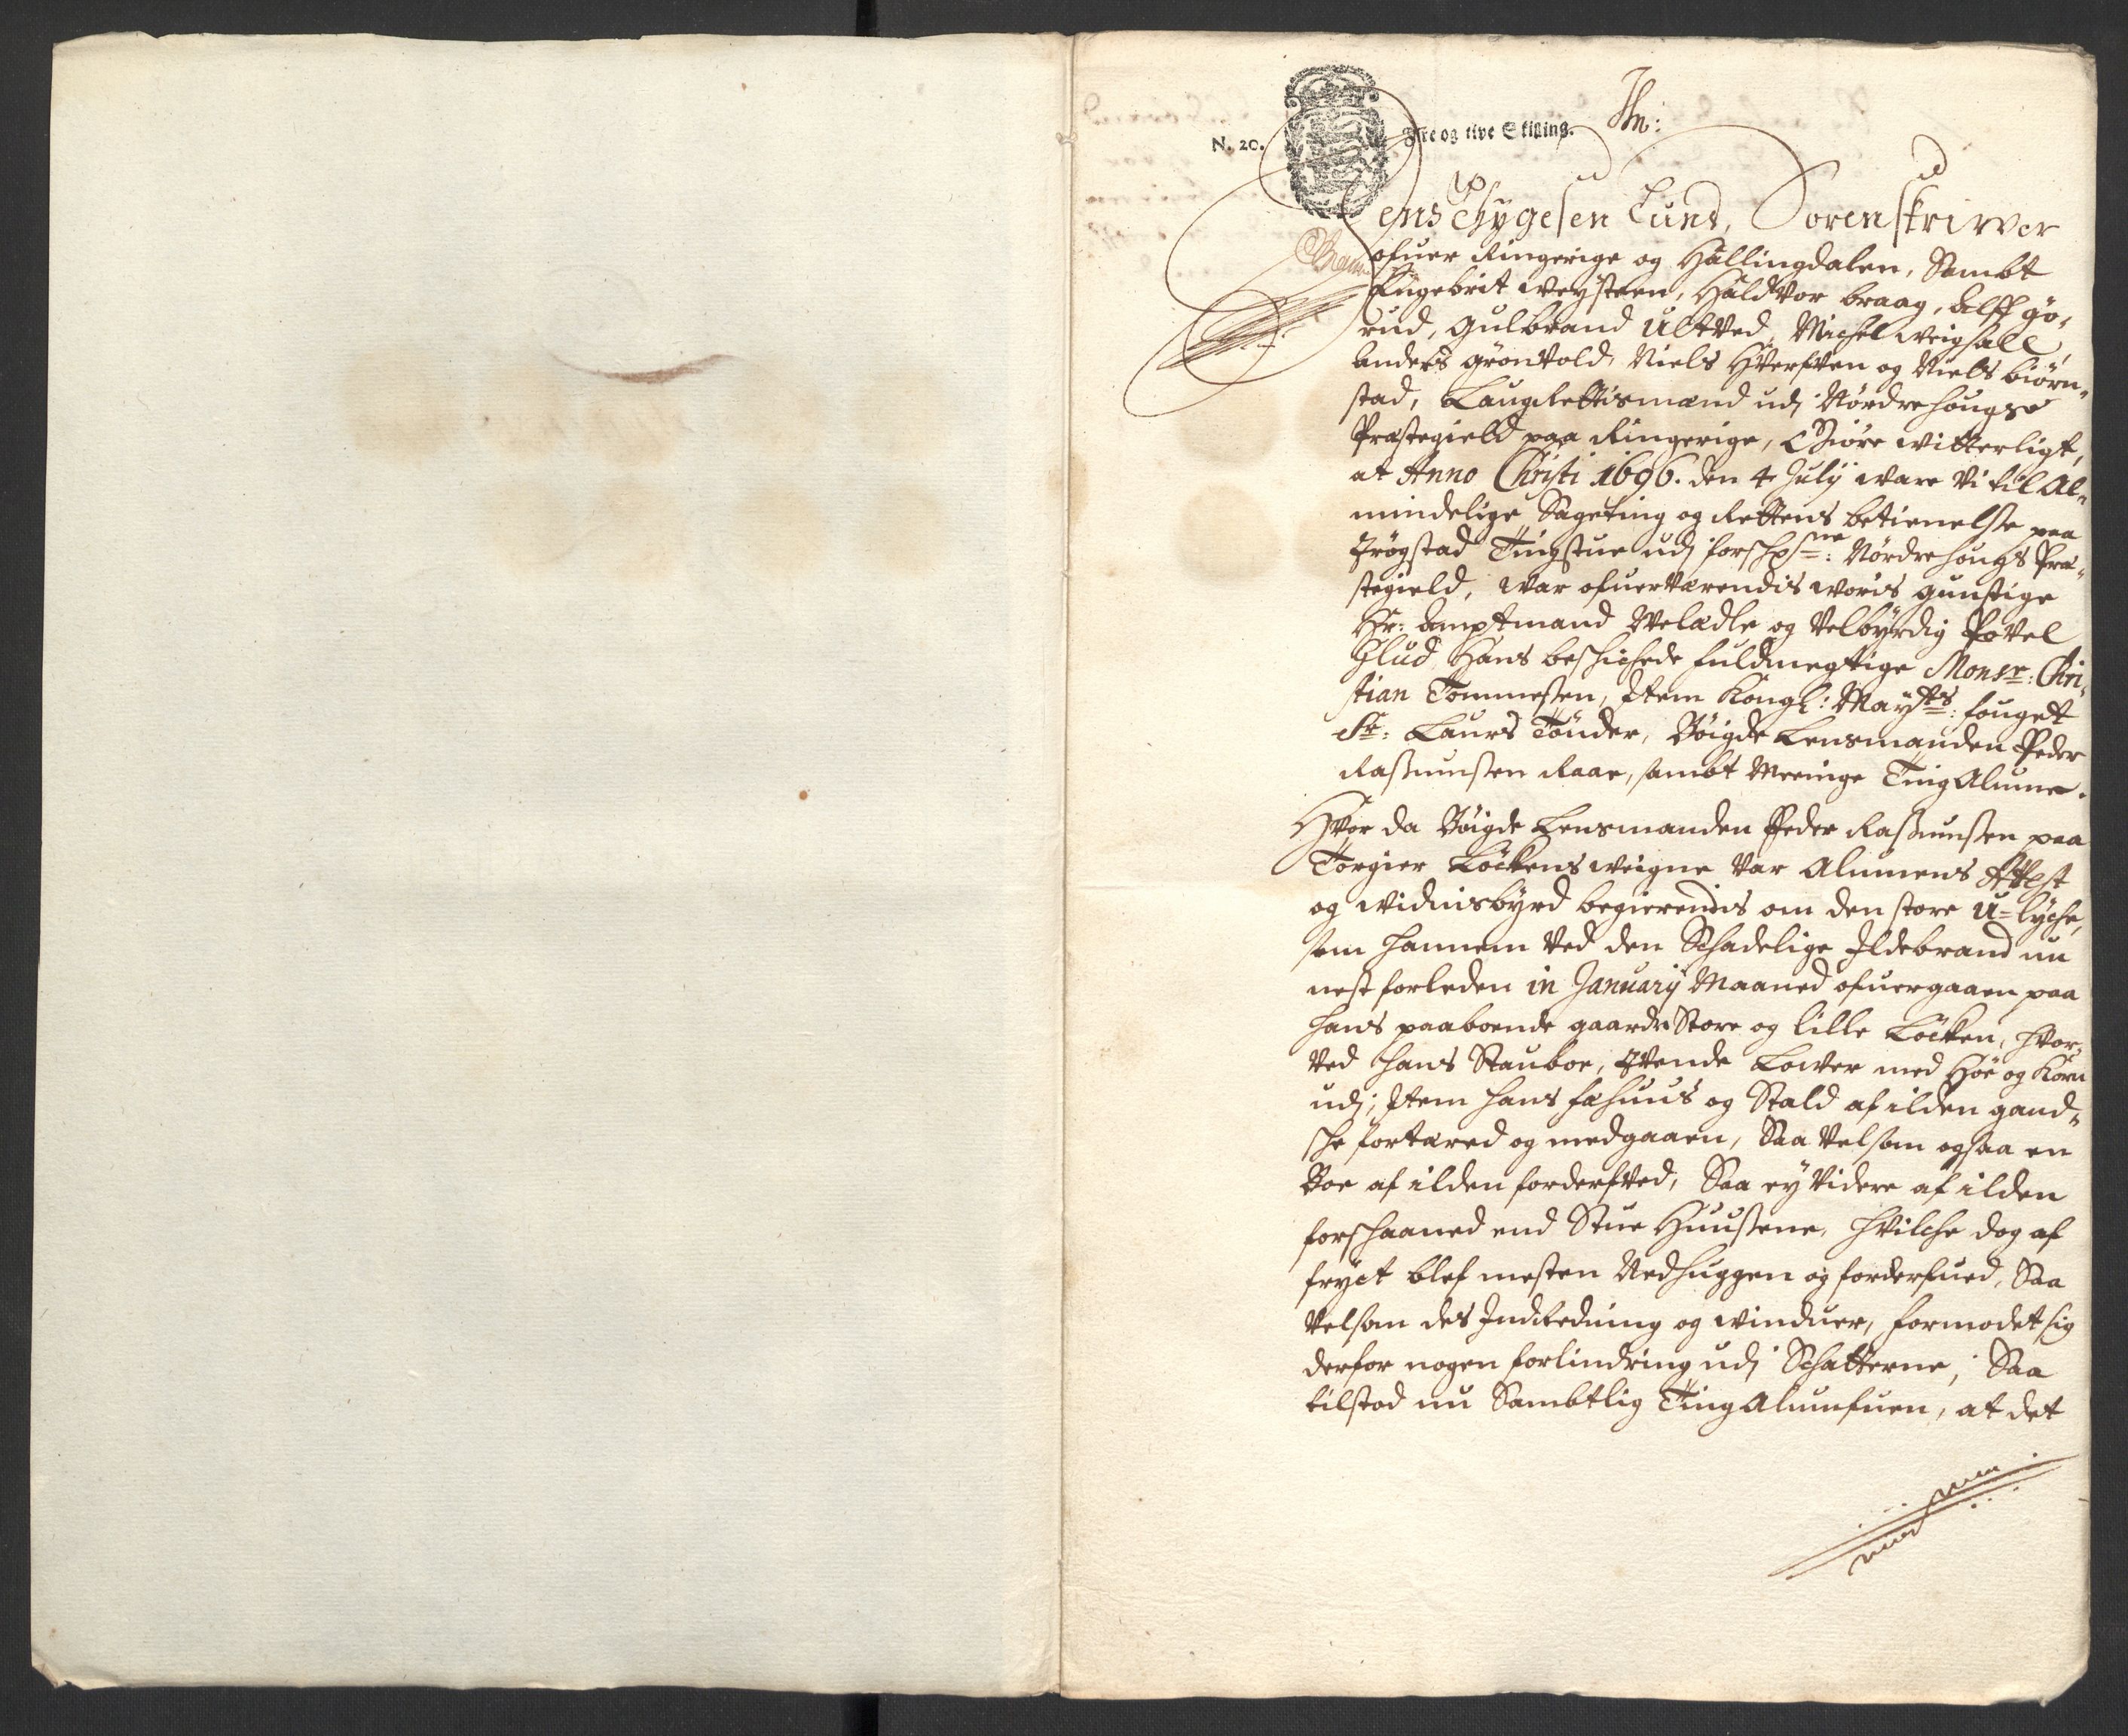 N. 20. Fire og tive Skilling.
Jens Thygesen Lund, Sorenskriwer
ofuer Ringerige og Hallingdalen, Sambt
Engebrit weysteen, Haldvor braag, Alff gö-
rud, Gulbrand Ultved, Michel weigsall,
Anders grönvold, Niels Hverfven og Niels biörn-
stad, Laugrettismænd udj Nordrehougs
Præstegield paa Ringerige, Giöre witterligt,
at Anno Christi 1696. den 4 July ware Vi til Al-
mindelige Sageting og Rettens betienelse paa
Trögstad Tingstue udj forschrefne: Nordrehougs Præ-
stegield, war ofuerværendis woris gunstige
Hr: Amptmand Welædle og Velbyrdig Povel
Glud Hans beschichede fuldmegtige Monsr: Chri-
stian Tommessen, Item Kongl: Mayts: fouget
Sr: Laurs Tönder, Böigde Lensmanden Peder
Rasmussen Raae, sambt Meenige Ting Alumue.
Hvor da Böigde Lensmanden Peder Rasmussen paa
Torgier Löckens weigne var Almuens Attest
og widnisbyrd begierendis om den store U-lyche,
som hannem ved den Schadelige Ildebrand nu
nest forleden in January Maaned ofuergaaen paa
hans paaboende gaarde Store og lille Löcken, hvor-
ved hans Stauboe, Tvende Lower med Höe og Korn
udj; Item hans fæhuus og Stald af ilden gand-
sche fortæred og medgaaen, Saa velsom ogsaa en
Boe af ilden forderfved, Saa ey videre af ilden
forschaaned end Stue Huusene, hvilche dog af
fryct blef mesten Nedhuggen og forderfued, Saa
velsom des Indredning og winduer, formodet sig
derfor nogen forlindring udj Schatterne; Saa
tilstod nu Sambtlig Ting Alumfuen, at det